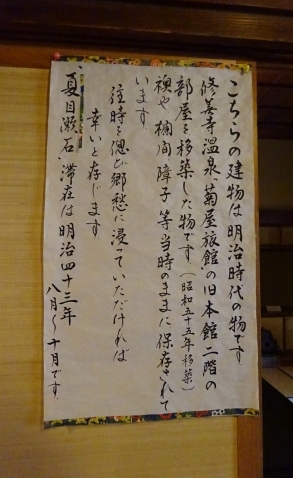 こちらの建物は明治時代の物です
修善寺温泉、菊屋旅館の旧本館二階の
部屋を移築した物です(昭和五十五年移築)
襖や欄間障子等当時のままに保存されて
います
往時を偲び郷愁に浸っていただければ
幸いと存じます
夏目漱石、滞在は明治四十三年
八月〜十月です